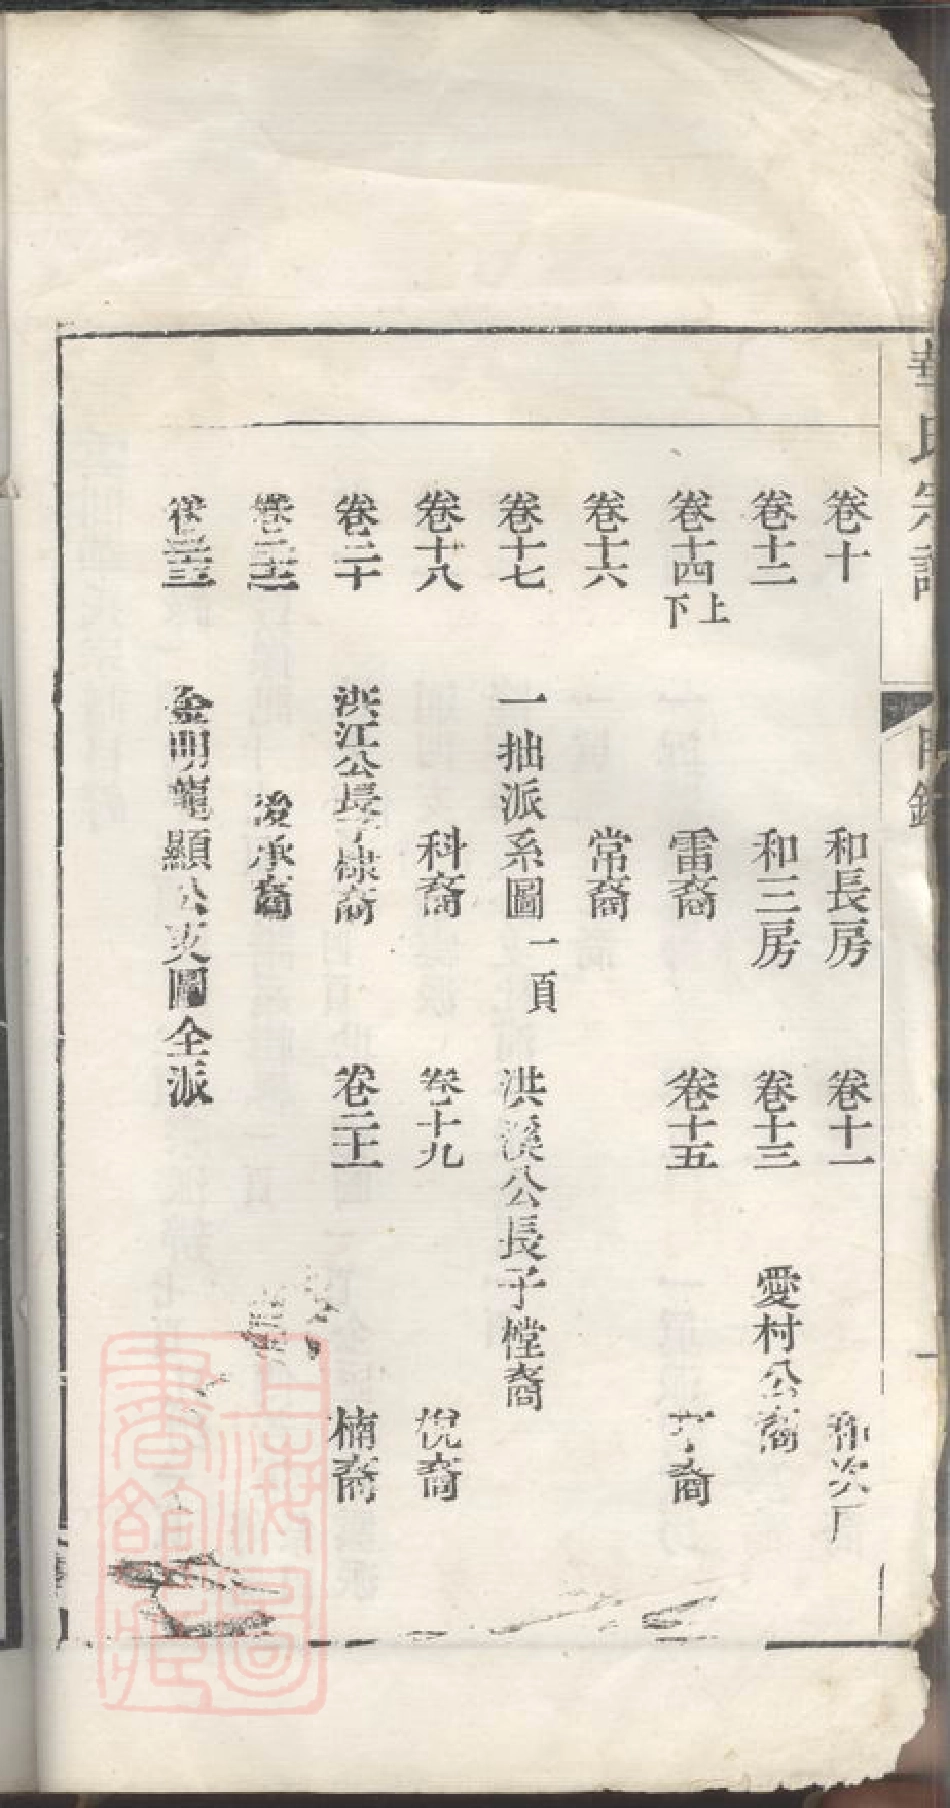 華氏宗譜 目錄 一
卷十 和長房 卷十一 和次
卷十二 和三房 卷十三 愛村公裔
卷十四上下 雷裔 卷十五 裔
卷十六 常裔
卷十七 一拙派系圖一頁 洪溪公長子樘裔
卷十八 科裔 卷十九 悅裔
卷二十 洪江公長子棣裔 卷二十一 楠裔
卷二十二 浚承裔
卷二十三 金明龍顯公支圖全派
上海圖書館藏